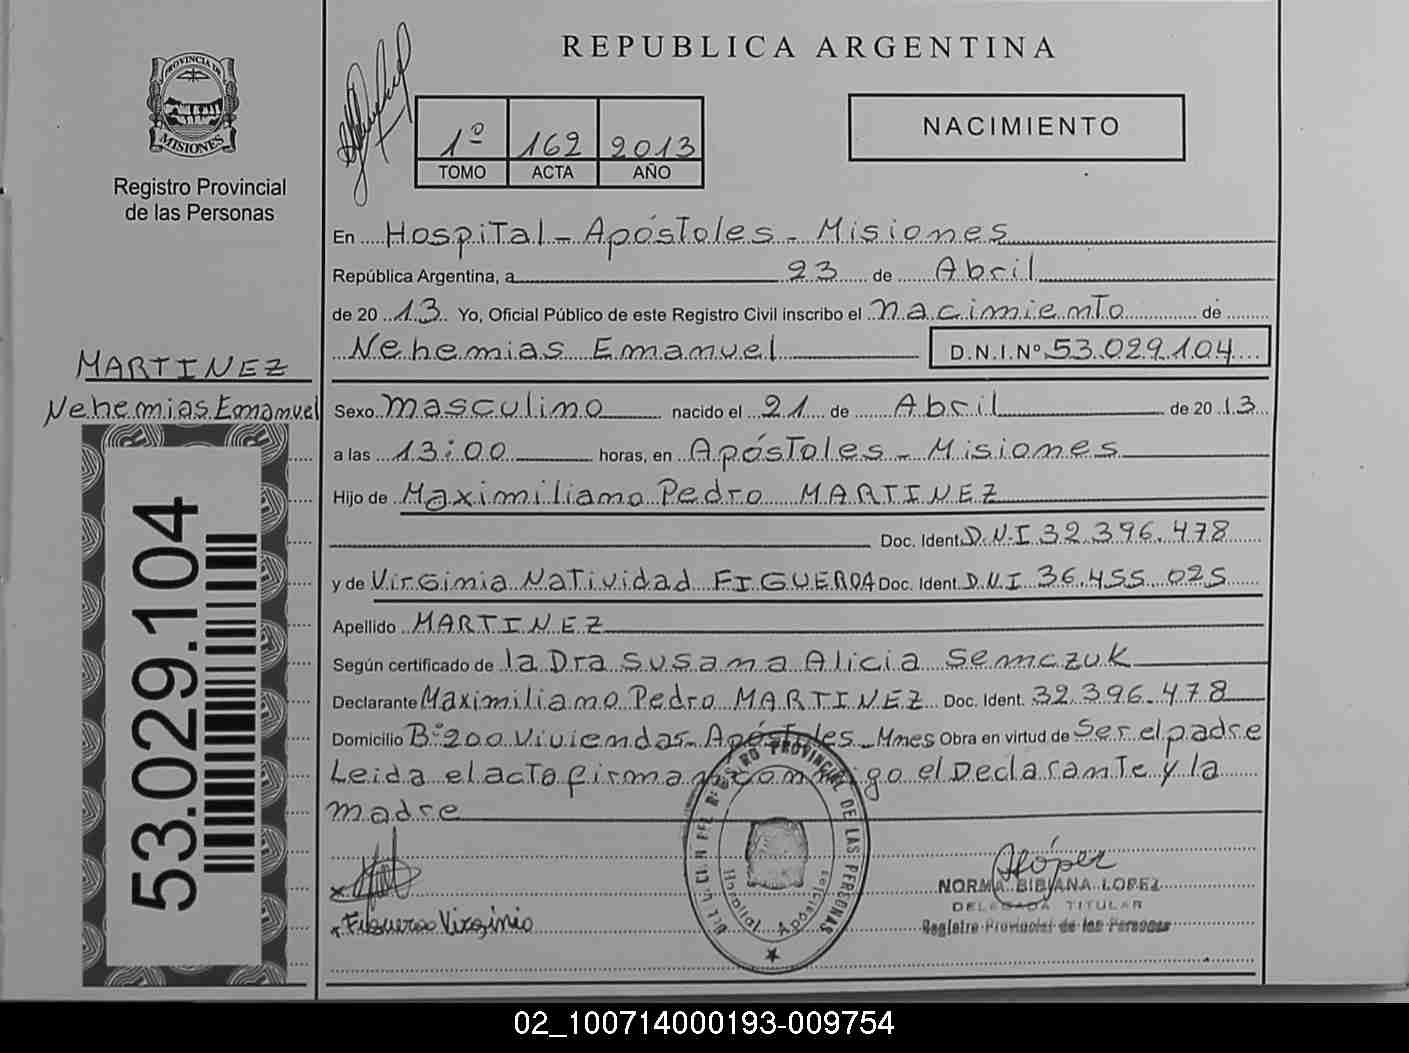 REPUBLICA ARGENTINA
PROVINCIA DE
MISIONES
Registro Provincial
de las Personas
1º 162 2013
TOMO ACTA AÑO
NACIMIENTO
En Hospital - Apóstoles - Misiones
República Argentina, a 23 de Abril
de 20 13 Yo, Oficial Público de este Registro Civil inscribo el nacimiento de
Nehemias Emanuel D.N.I.Nº 53.029.104
MARTINEZ
Nehemias Emanuel
Sexo masculino nacido el 21 de Abril de 20 13
a las 13:00 horas, en Apóstoles - Misiones
Hijo de Maximiliano Pedro MARTINEZ
Doc. Ident. D.N.I 32.396.478
y de Virginia Natividad FIGUEROA Doc. Ident. D.N.I 36.455.025
Apellido MARTINEZ
Según certificado de la Dra Susana Alicia Semczuk
Declarante Maximiliano Pedro MARTINEZ Doc. Ident. 32.396.478
Domicilio Bº 200 Viviendas - Apóstoles - Mnes Obra en virtud de Ser el padre
Leida el acta firman conmigo el Declarante y la
madre
53.029.104
Figueroa Virginia
REGISTRO PROVINCIAL DE LAS PERSONAS
Hospital Apóstoles
López
NORMA BIBIANA LOPEZ
DELEGADA TITULAR
Registro Provincial de las Personas
02_100714000193-009754